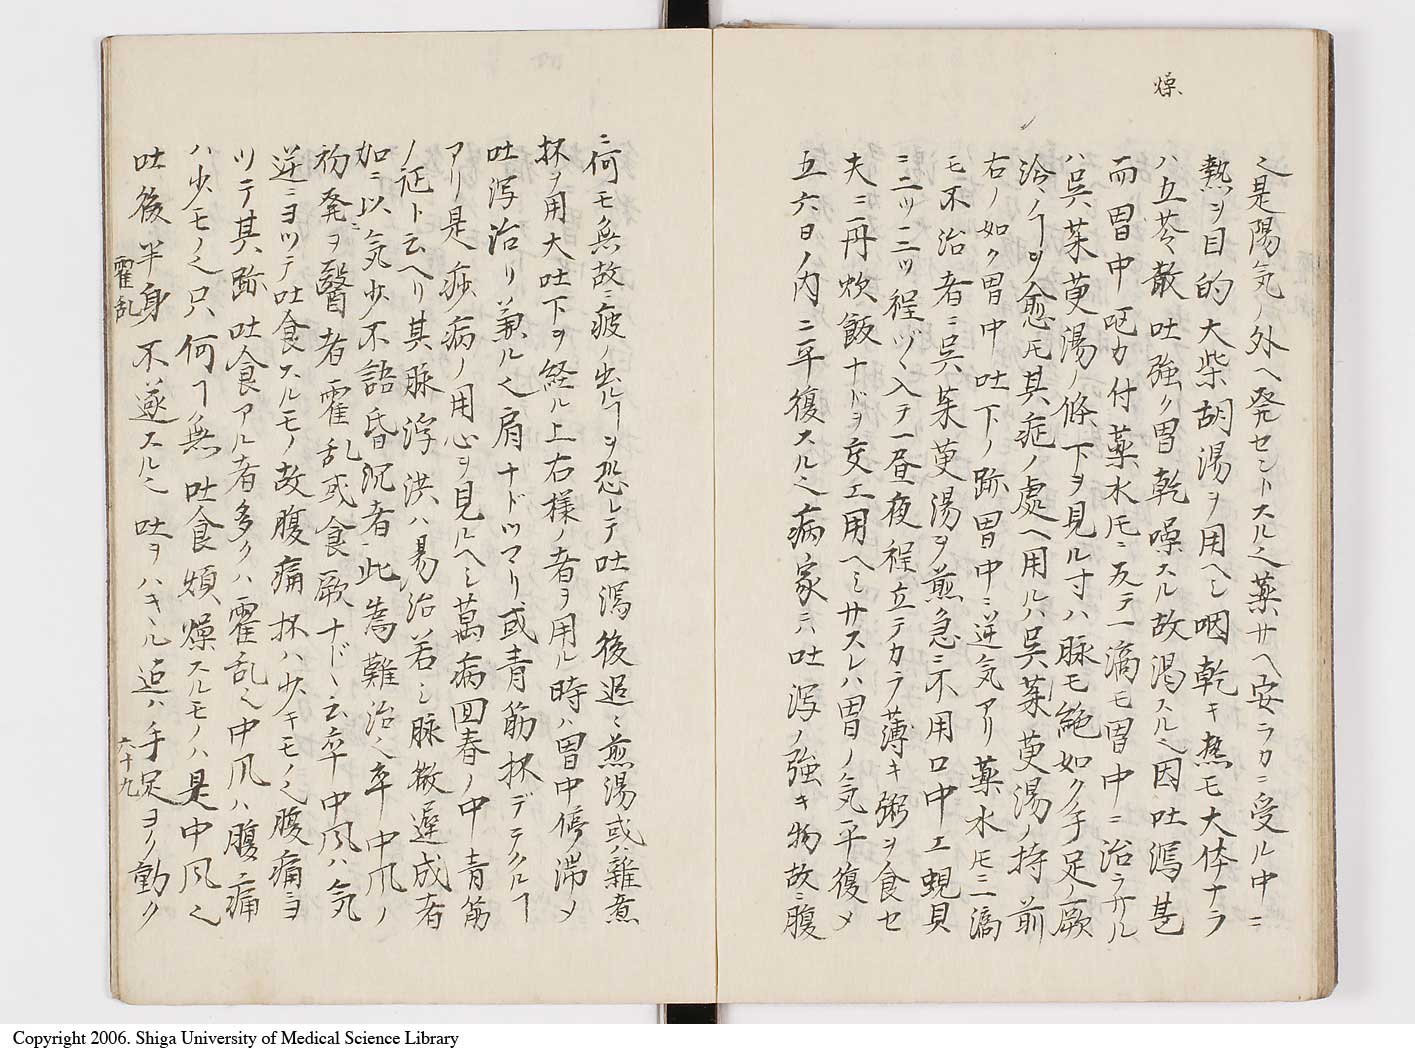 燥
之是陽気ノ外ヘ発セントスル之薬サヘ安ラカニ受ル中ニ
熱ヲ目的大柴胡湯ヲ用ヘシ咽乾キ熱モ大体ナラ
ハ五苓散吐強ク胃乾噪スル故渇スル之因吐瀉甚
而胃中嘔カ付薬水モ三五テ一滴モ胃中ニ治ラサル
ハ呉茱萸湯ノ條下ヲ見ル寸ハ脉モ絶如ク手足ノ厥
冷ノヿヲ愈モ其症ノ處ヘ用ルハ呉茱萸湯ノ持前
右ノ如ク胃中吐下ノ跡胃中ニ逆気アリ薬水モ二滴
モ不治者ニ呉茱萸湯ヲ煎急ニ不用口中エ蜆貝
ニ二ツ二ツ程ヅヽ入テ一昼夜程立テカラ薄キ粥ヲ食セ
夫ニ再炊飯ナドヲ交エ用ヘシサスレハ胃ノ気平復メ
五六日ノ内ニ平復スル之病家ニハ吐瀉ノ強キ物故ニ腹
ニ何モ無故ニ疲ノ出ルヿヲ恐レテ吐瀉後追々煎湯或ハ雑煮
抔ヲ用大吐下ヲ経ル上右様ノ者ヲ用ル時ハ胃中停滞メ
吐瀉治リ兼ル之肩ナドツマリ或青筋抔デテクルヿ
アリ是痧病ノ用心ヲ見ルヘシ萬病回春ノ中青筋
ノ証ト云ヘリ其脉浮洪ハ易治若シ脉微遅成者
加ニ以気少不語昏沉者此為難治之卒中風ノ
初発ヲ醫者霍乱或食厥ナドヽ云卒中風ハ気
逆ニヨツテ吐食スルモノ故腹痛抔ハ少キモノ之腹痛ヨ
ツテ其跡吐食アル者多クハ霍乱之中風ハ腹ニ痛
ハ少モノ之只何ヿ無吐食煩燥スルモノハ是中風之
吐後半身不遂スル之吐ヲハキ〳〵ル迄ハ手足ヨク動ク
霍乱
六十九
Copyright 2006. Shiga University of Medical Science Library